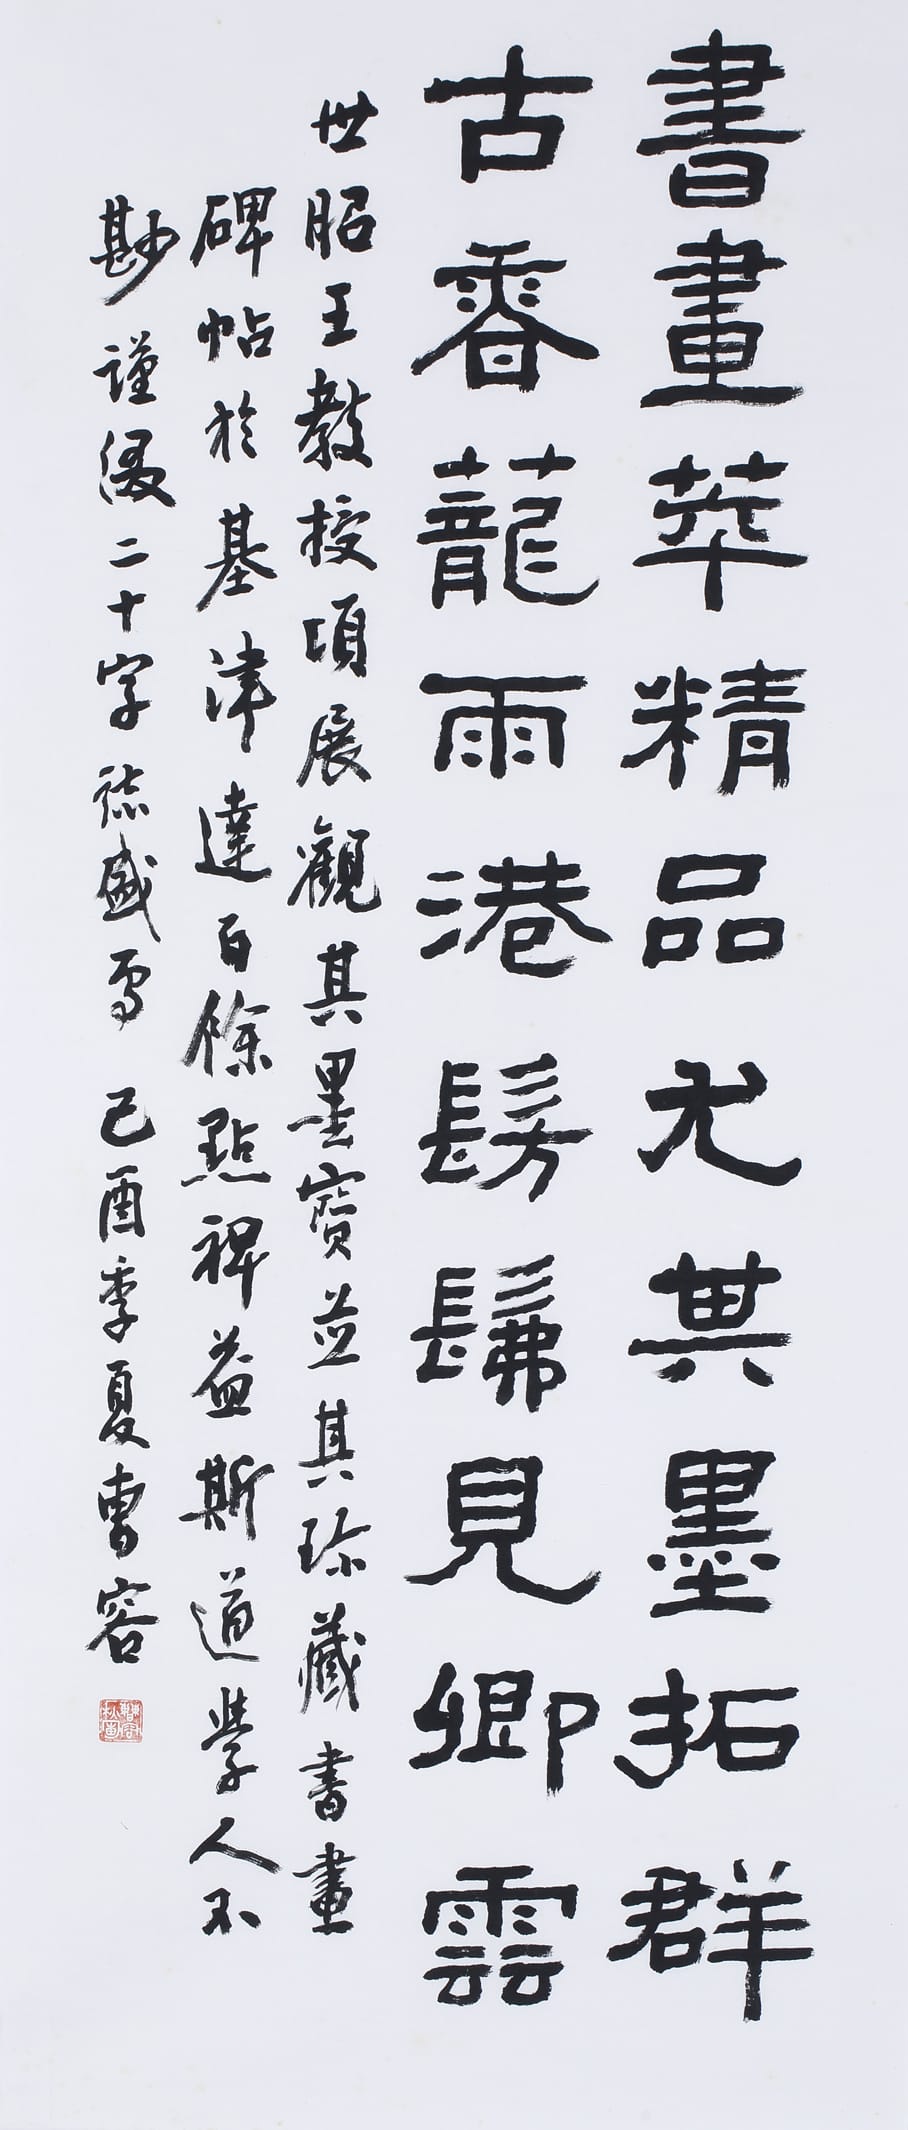 書畫萃精品尤其墨拓群
古蘢雨港髣髴見卿雲
世昭王教授頃展觀其墨寶並其珍藏書畫
碑帖於基津達百餘點裨益斯道學人不
尠謹綴二十字誌盛焉 己酉季夏曹容